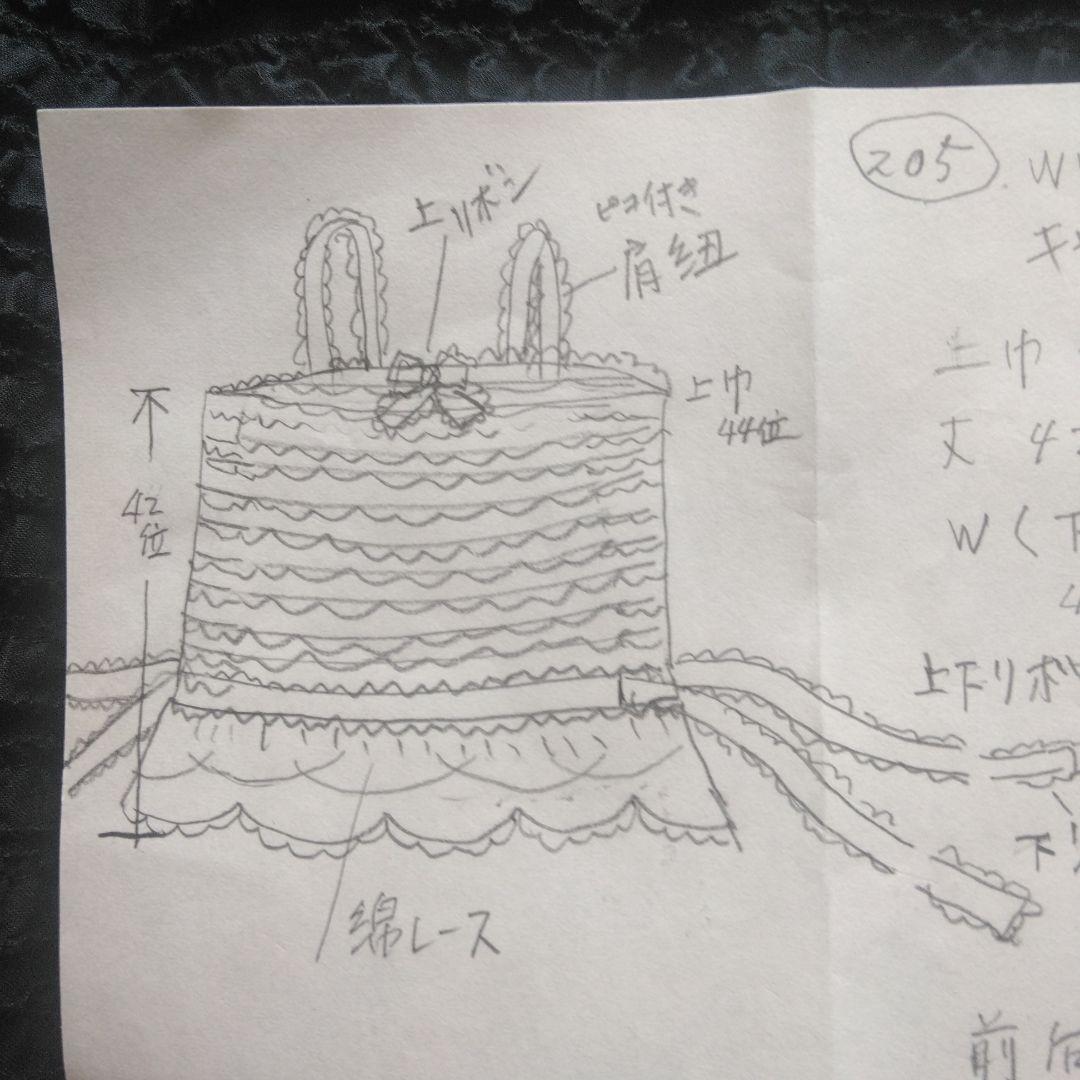 上リボン
ピコ付き
肩紐
上巾
44位
42
位
綿レース
205
上巾
丈 4
W
上下リボ
前